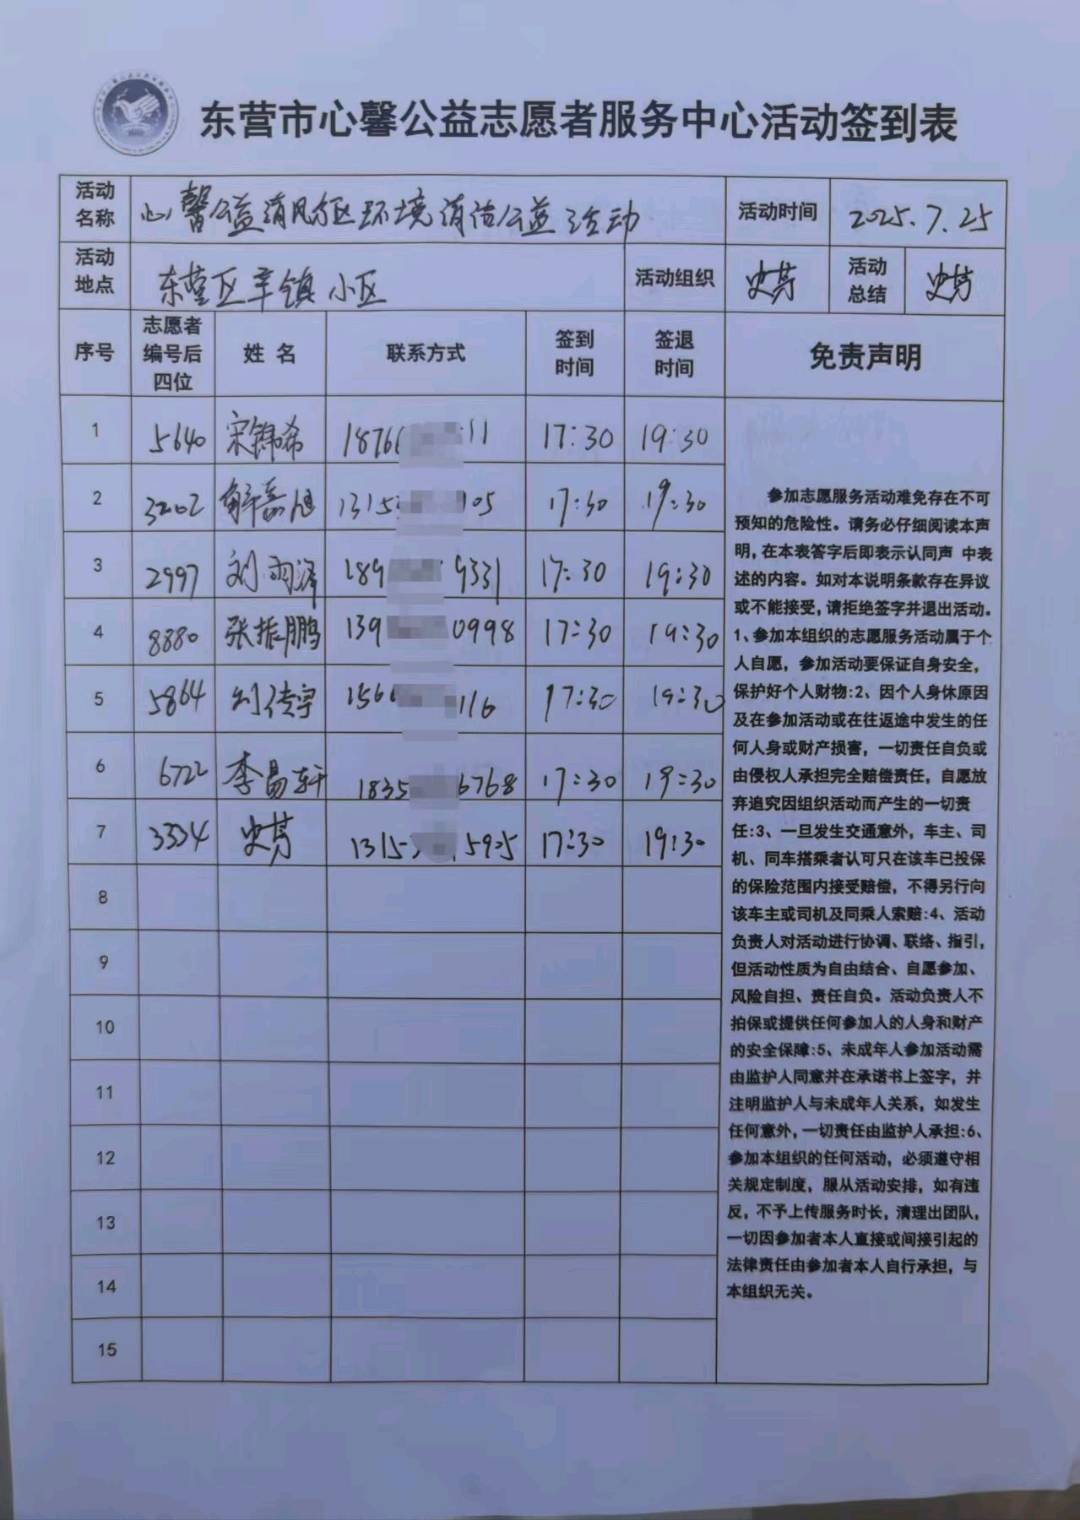 东营市心馨公益志愿者服务中心活动签到表
活动名称 心馨公益清风湾区环境清洁公益活动 活动时间 2025.7.25
活动地点 东营区辛镇小区 活动组织 史芳 活动总结 史芳
序号 志愿者编号后四位 姓名 联系方式 签到时间 签退时间 免责声明
1 5640 宋锦希 1876 11 17:30 19:30
2 3202 解嘉旭 1315 105 17:30 19:30
3 2997 刘雨泽 189 9331 17:30 19:30
4 8880 张振鹏 139 0998 17:30 19:30
5 5864 刘传宇 156 116 17:30 19:30
6 6722 李易轩 1835 6768 17:30 19:30
7 3334 史芳 1315 5905 17:30 19:30
8
9
10
11
12
13
14
15
参加志愿服务活动难免存在不可
预知的危险性。请务必仔细阅读本声
明,在本表答字后即表示认同声 中表
述的内容。如对本说明条款存在异议
或不能接受,请拒绝签字并退出活动。
1、参加本组织的志愿服务活动属于个
人自愿，参加活动要保证自身安全,
保护好个人财物:2、因个人身休原因
及在参加活动或在往返途中发生的任
何人身或财产损害，一切责任自负或
由侵权人承担完全赔偿责任，自愿放
弃追究因组织活动而产生的一切责
任:3、一旦发生交通意外，车主、司
机、同车搭乘者认可只在该车已投保
的保险范围内接受赔偿，不得另行向
该车主或司机及同乘人索赔:4、活动
负责人对活动进行协调、联络、指引,
但活动性质为自由结合、自愿参加、
风险自担、责任自负。活动负责人不
拍保或提供任何参加人的人身和财产
的安全保障:5、未成年人参加活动需
由监护人同意并在承诺书上签字，并
注明监护人与未成年人关系，如发生
任何意外,一切责任由监护人承担:6、
参加本组织的任何活动，必须遵守相
关规定制度，服从活动安排，如有违
反，不予上传服务时长，清理出团队,
一切因参加者本人直接或间接引起的
法律责任由参加者本人自行承担，与
本组织无关。